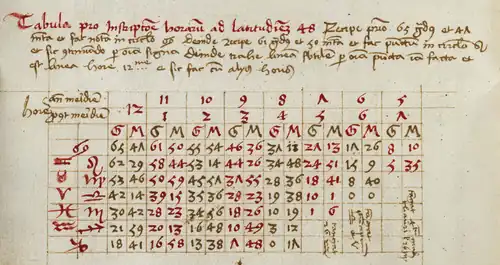 Tabula pro Inscriptoe horarum ad latitudinem 48 Recipe primo 65 gdg et 47
mta et fac nota in circulo ♋ deinde Recipe 61 gdg et 50 mta et fac punctum in circulo ♋
et sic continuando per omnia signa Deinde trahe lineam subtilem per omnia puncta iam facta et
est linea hore 12me et sic fac cum alys horis
hore
an meridiem 11 10 9 8 7 6 5
12
post meridiem 1 2 3 4 5 6 7
G M G M G M G M G M G M G M G M
♋ 65 47 61 50 55 54 46 36 37 13 27 13 17 26 8 10
♊ ♌ 62 29 58 44 53 14 44 26 34 48 24 51 15 9 5 35
♉ ♍ 53 46 50 59 45 57 37 55 28 26 18 41 8 40
♈ ♎ 42 14 39 15 35 36 28 23 19 38 10 1 0
♓ ♏ 30 42 28 23 34 56 18 26 10 19 1 6
♒ ♐ 21 59 20 13 16 24 10 48 3
♑ 18 41 16 58 13 38 7 48 0 17